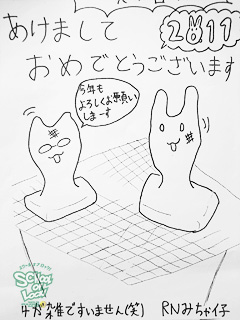 あけまして
2011
おめでとうございます
今年も
よろしくお願い
しまーす
SCHOOL OF LOCK!
手が雑ですいません(笑)
RNみちゃ仔